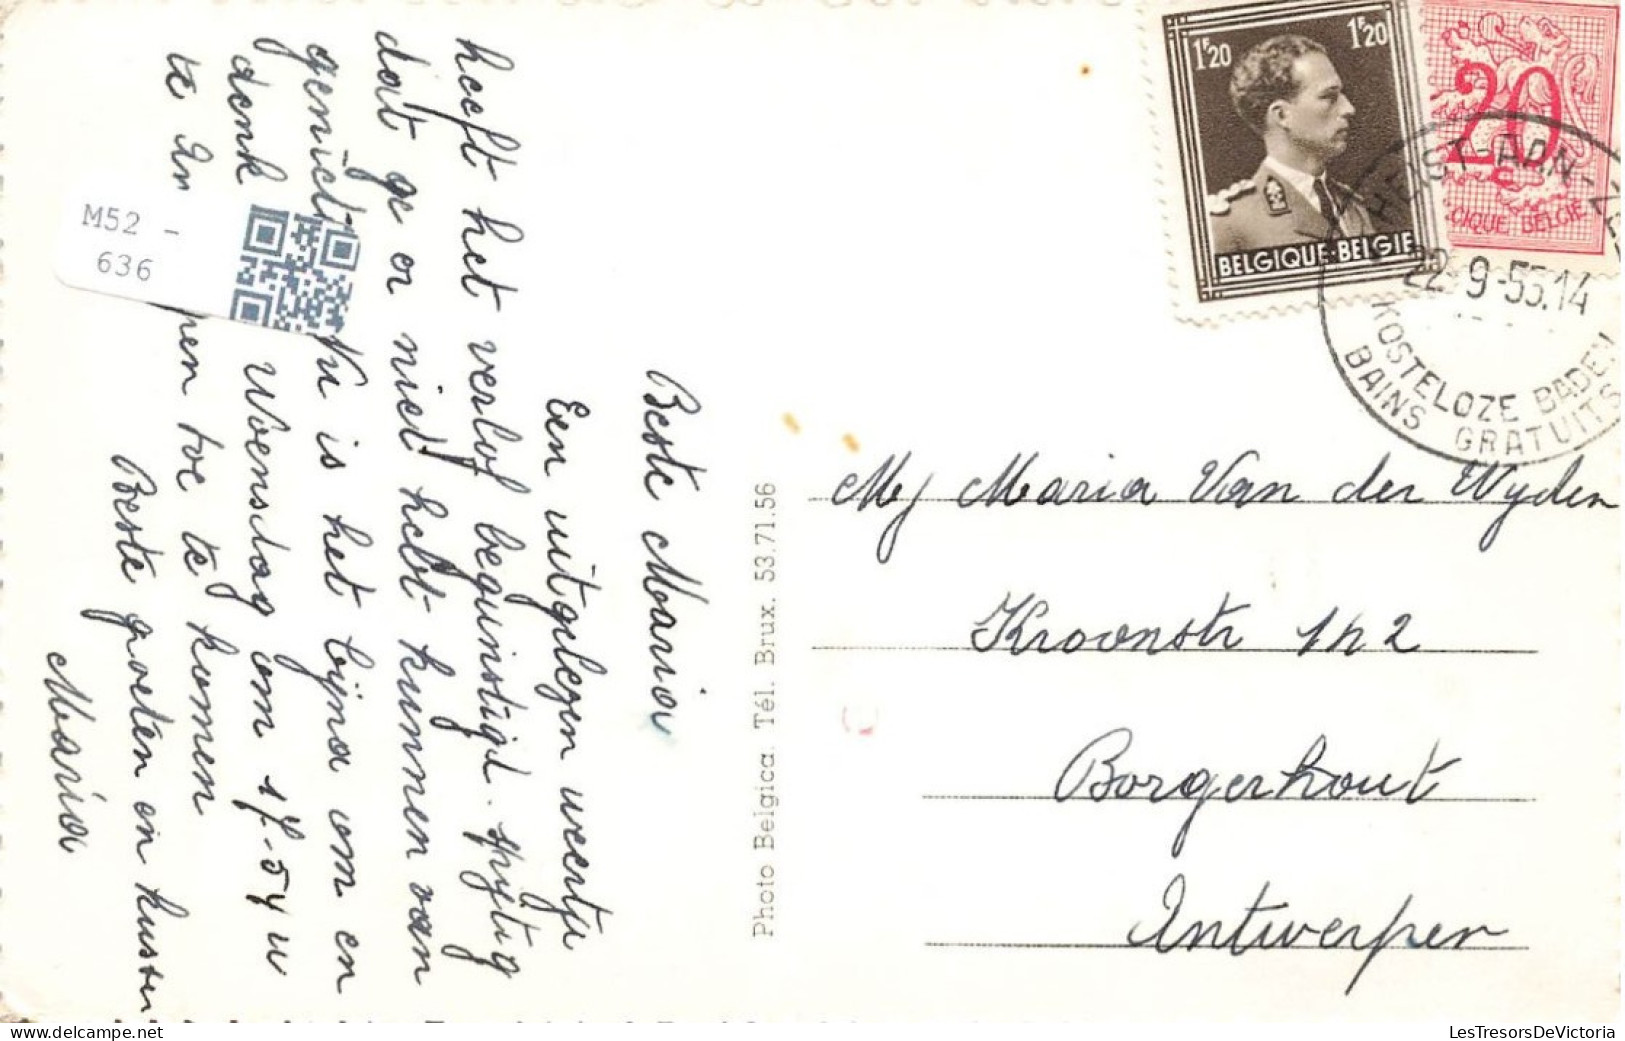 Beste Maria
Een uitgelezen weertje
heeft het verlof begunstigd. Spijtig
dat ge er niet hebt kunnen van
genieten. Nu is het bijna om en
denk Woensdag om 17.54 u
te An pen toe te komen
Beste groeten en kussen
Maria
M52 -
636
Photo Belgica. Tél. Brux. 53.71.56
1F20 1F20
BELGIQUE·BELGIE
20
C
GIQUE BELGIE
HEIST-AAN-ZEE
22-9-55.14
KOSTELOZE BADEN
BAINS GRATUITS
Mej Maria Van der Wyden
Kroonstr 142
Borgerhout
Antwerpen
LesTresorsDeVictoria